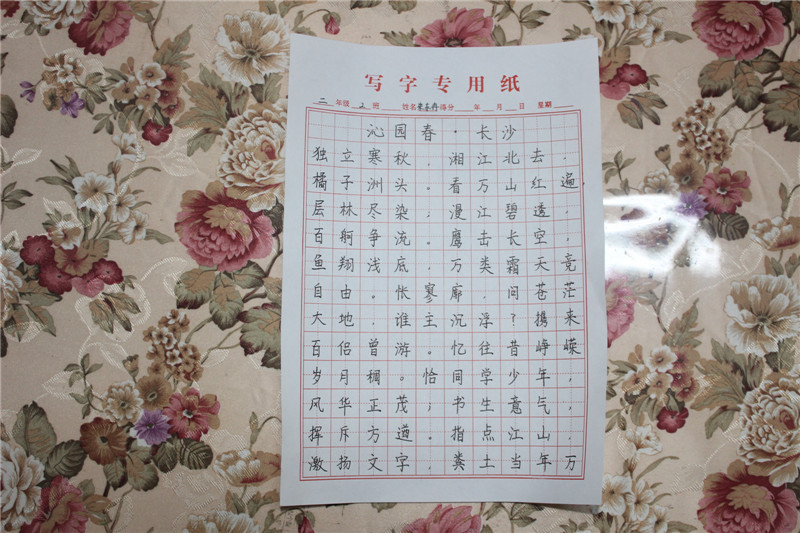 写字专用纸
二年级 2 班 姓名 得分 年 月 日 星期
沁园春·长沙
独立寒秋，湘江北去，
橘子洲头。看万山红遍
层林尽染；漫江碧透，
百舸争流。鹰击长空，
鱼翔浅底，万类霜天竞
自由。怅寥廓，问苍茫
大地，谁主沉浮？携来
百侣曾游。忆往昔峥嵘
岁月稠。恰同学少年，
风华正茂；书生意气，
挥斥方遒。指点江山，
激扬文字，粪土当年万